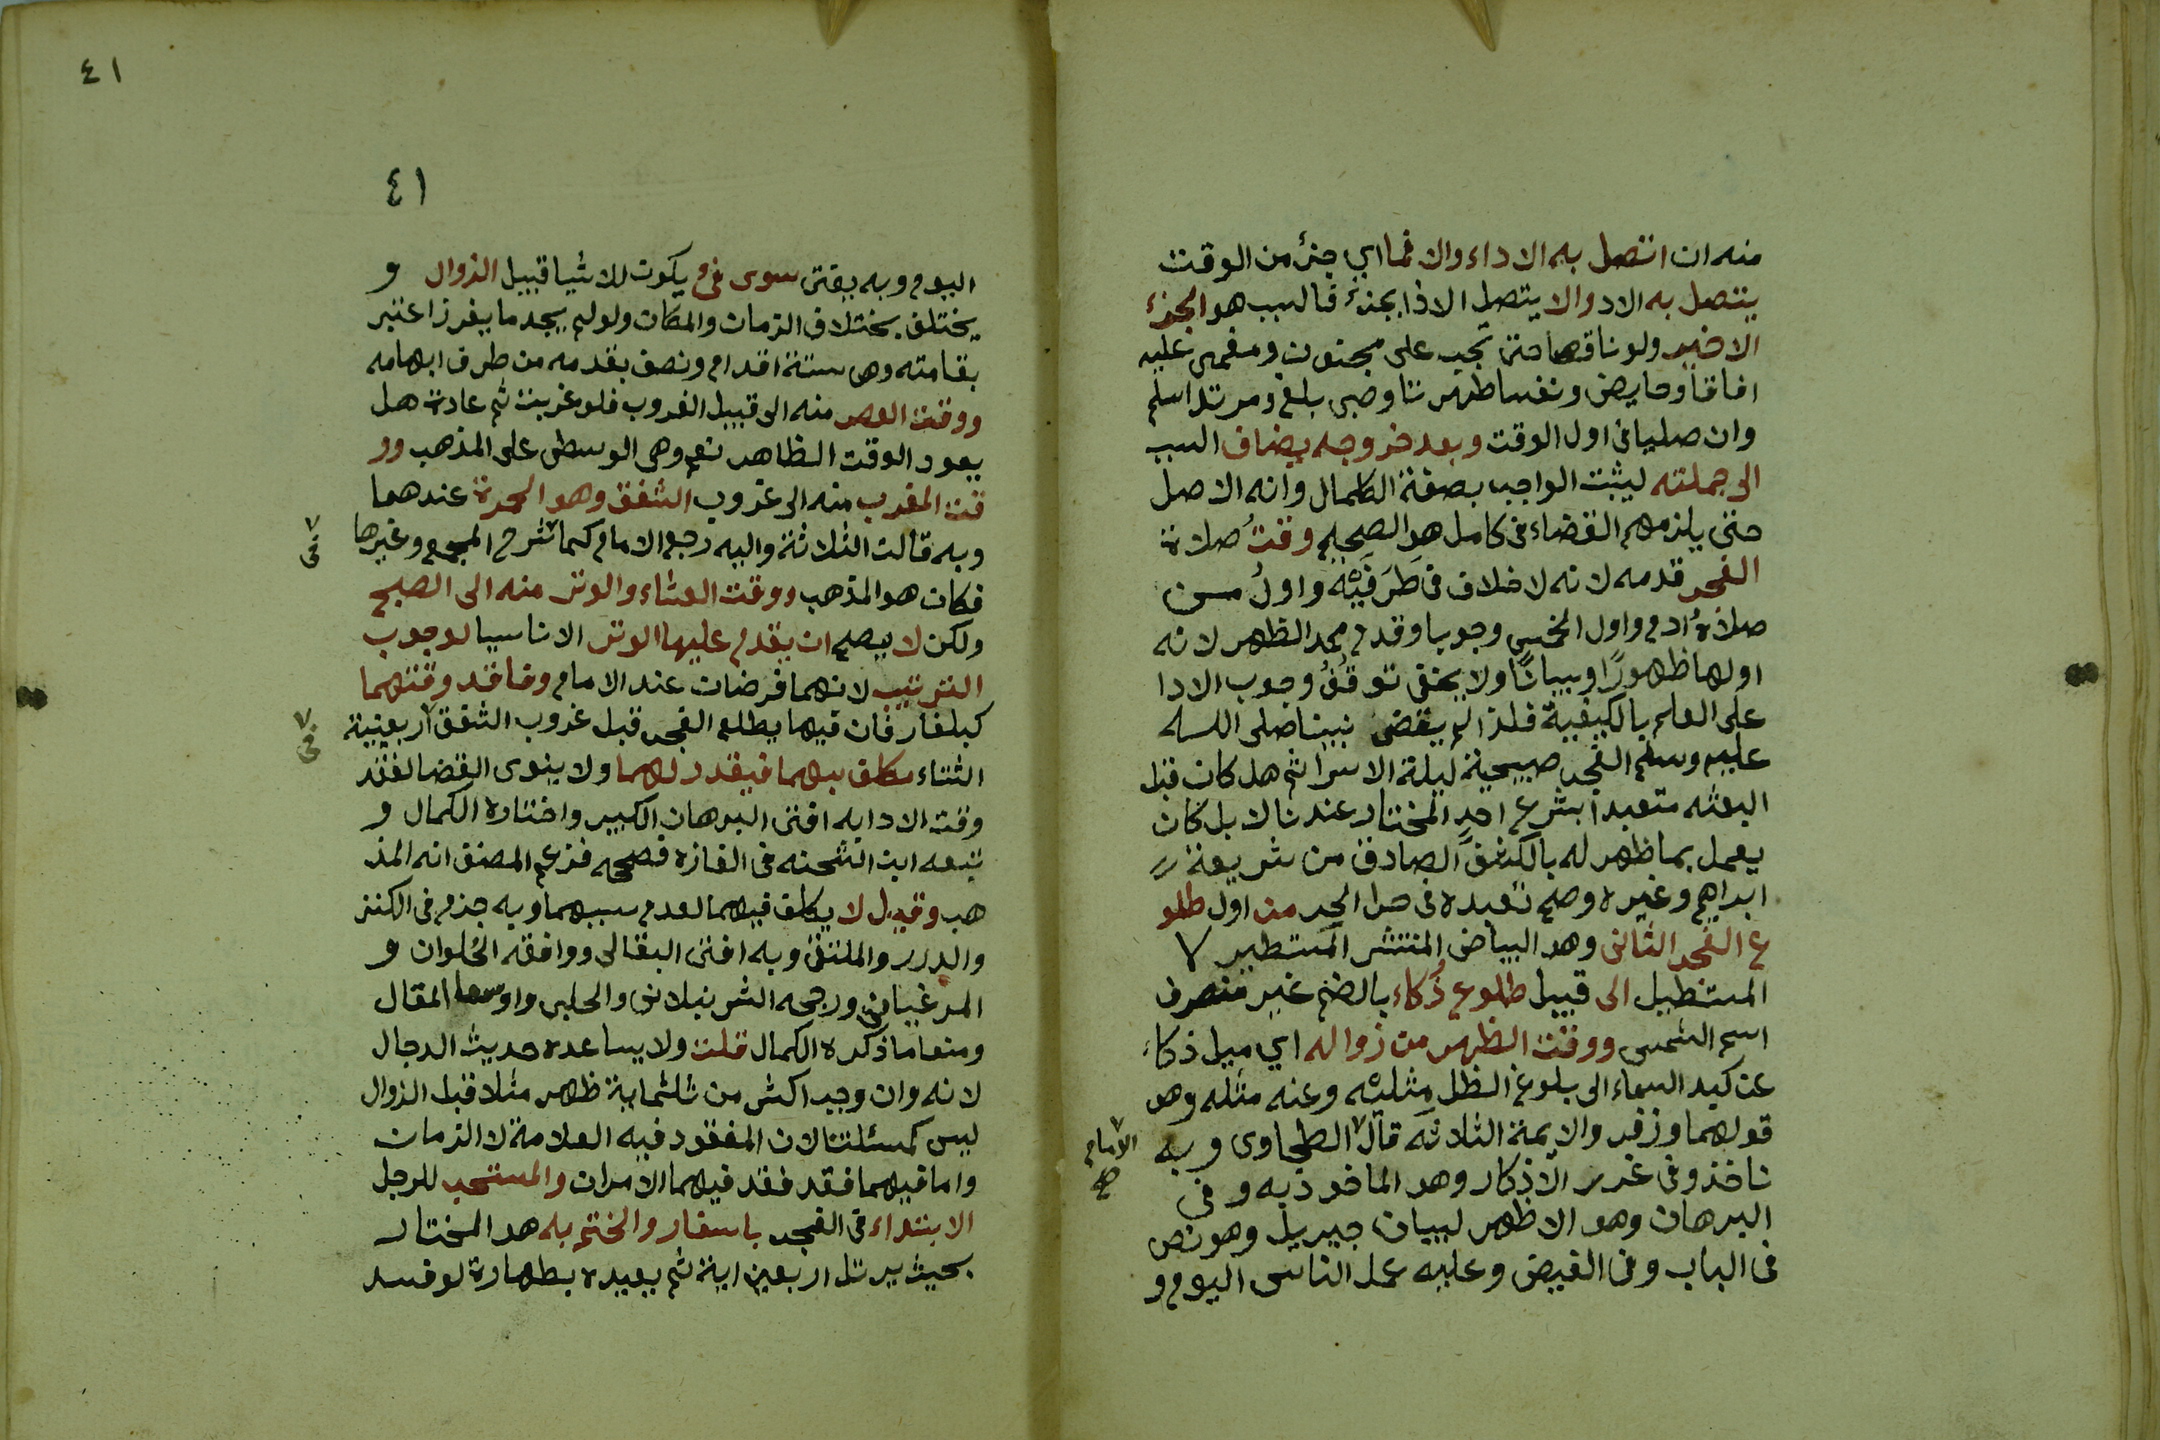 منه ان اتصل به الاداء والا فما اي جزء من الوقت
يتصل به الاد والا يتصل الاذا بجزء فالسبب هو الجزء
الاخير ولو ناقصا حتى تجب على مجنون ومغمى عليه
افاقا وحايض ونفسا طهرتا وصبى بلغ ومرتد اسلم
وان صليا فى اول الوقت وبعد خروجه يضاف السبب
الى جملته ليثبت الواجب بصفة الكمال وانه الاصل
حتى يلزمهم القضاء فى كامل هو الصحيح وقت صلاة
الفجر قدمه لانه لا خلاف فى طرفيه واول من
صلاه ادم واول الخمس وجوبا وقدم محمد الظهر لانه
اولها ظهورا وبيانا ولا يخفى توقف وجوب الادا
على العلم بالكيفية فلذا لم يقض نبينا صلى الله
عليه وسلم الفجر صبيحية ليلة الاسرا ثم هل كان قبل
البعثه متعبدا بشرع احد المختار عندنا لا بل كان
يعمل بما ظهر له بالكشف الصادق من شريعة
ابراهيم وغيره وصح تعبده فى حرا بحر من اول طلو
ع الفجر الثانى وهو البياض المنتشر المستطير لا
المستطيل الى قبيل طلوع ذكاء بالضم غير منصرف
اسم الشمس ووقت الظهر من زواله اي ميل ذكاء
عن كبد السماء الى بلوغ الظل مثليه وعنه مثله وهو
قولهما وزفر والايمة الثلاثه قال الطحاوى وبه
الامام صح
ناخذ وفى غرر الاذكار وهو الماخوذ به وفى
البرهان وهو الاظهر لبيان جبريل وهو نص
فى الباب وفى الفيض وعليه عمل الناس اليوم و
٤١
٤١
اليوم وبه يفتى سوى فىء يكون للاشيا قبيل الزوال و
يختلف بختلاف الزمان والمكان ولو لم يجد ما يغرز اعتبر
بقامته وهى ستة اقدام ونصف بقدمه من طرف ابهامه
ووقت العصر منه الى قبيل الغروب فلو غربت ثم عادت هل
يعود الوقت الظاهر نعم وهى الوسطى على المذهب وو
قت المغرب منه الى غروب الشفق وهو الحمرة عندهما
وبه قالت الثلاثة واليه رجع الامام كما شرح المجمع وغيرها
فى
فكان هو المذهب ووقت العشاء والوتر منه الى الصبح
ولكن لا يصح ان يقدم عليها الوتر الا ناسيا لوجوب
الترتيب لانهما فرضان عند الامام وفاقد وقتهما
كبلغار فان فيها يطلع الفجر قبل غروب الشفق اربعينية
فى
الشتاء مكلف بهما فيقدر لهما ولا ينوى القضا لفقد
وقت الادا به افتى البرهان الكبير واختاره الكمال و
تبعه ابن الشحنه فى الغازه فصححه فزعم المصنف انه المذ
هب وقيل لا يكلف فيهما لعدم سببهما وبه جزم فى الكنز
والدرر والملتقى وبه افتى البقالى ووافقه الحلوان و
المرغينانى ورجحه الشرنبلانى والحلبى واوسعا المقال
ومنعا ما ذكره الكمال قلت ولا يساعده حديث الدجال
لانه وان وجب اكثر من ثلثماية ظهر مثلا قبل الزوال
ليس كمسئلتنا لان المفقود فيه العلامة لا الزمان
واما فيهما فقد فقد فيهما الامران والمستحب للرجل
الابتداء فى الفجر باسفار والختم به هو المختار
بحيث يرتل اربعين اية ثم يعيده بطهارة لو فسد